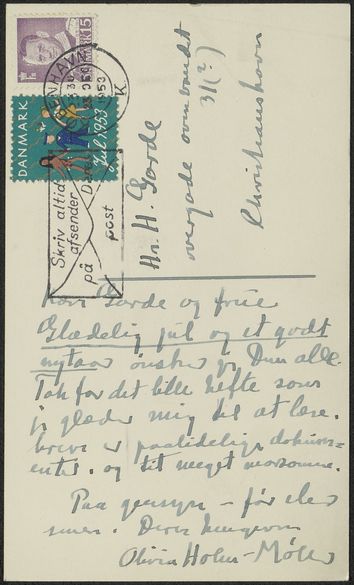 DANMARK 15
KØBENHAVN
1953
K.
DANMARK
Jul 1953
Skriv altid
afsender
på
post
Hr. H. Gorde
overgade oven vandet
31 (?)
Christianshavn
Kære Gorde og frue
Glædelig jul og et godt
nytaar ønsker jeg Dem alle.
Tak for det lille hefte som
jeg glæder mig til at læse.
breve er paalidelige dokum-
enter. og tit meget morsomme.
Paa gensyn – før eller
senere. Deres hengivne
Olivia Holm-Møller